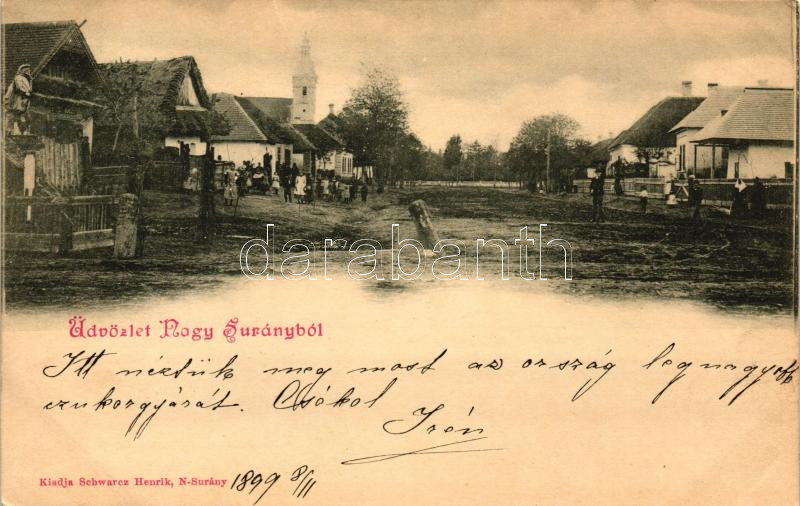 darabanth.com
Üdvözlet Nagy Surányból
Itt néztük meg most az ország legnagyobb
czukorgyárát. Csókol
Irén
Kiadja Schwarcz Henrik, N-Surány 1899 8/II